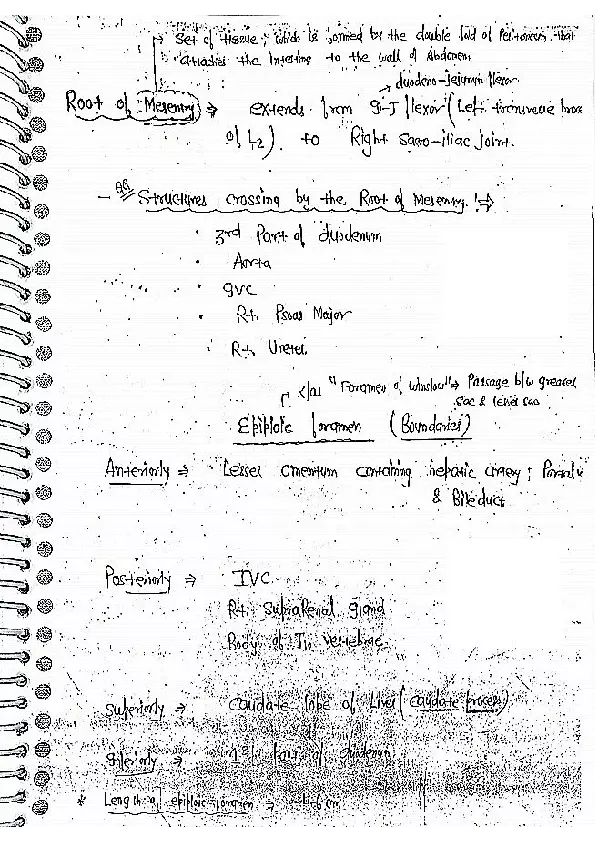 Set of tissue; which is formed by the double fold of Peritoneum that
attaches the Intestine to the wall of Abdomen
duodeno-Jejunum flexor
Root of Mesentry ⇒ extends from D-J flexor (Left transverse
of L2). to Right Sacro-iliac Joint.
- Structures crossing by the Root of Mesentry !⇒
• 3rd Part of duodenum
• Aorta
• IVC
• Rt. Psoas Major
• Rt. Ureter
c/as "Foramen of Winslow" → Passage b/w greater
Sac & lesser Sac
Epiploic foramen (Boundaries)
Anteriorly ⇒ Lesser omentum containing hepatic artery;
& Bile duct
Posteriorly ⇒ IVC
Rt. SupraRenal gland
Body of T12 vertebrae
Superiorly ⇒ Caudate lobe of Liver (Caudate Process)
Inferiorly ⇒ 1st Part of duodenum
* Length of epiploic foramen ⇒